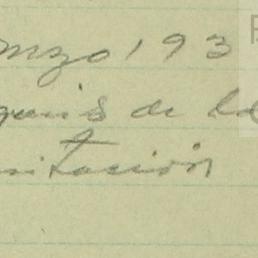 mzo 193
quis de la
itación